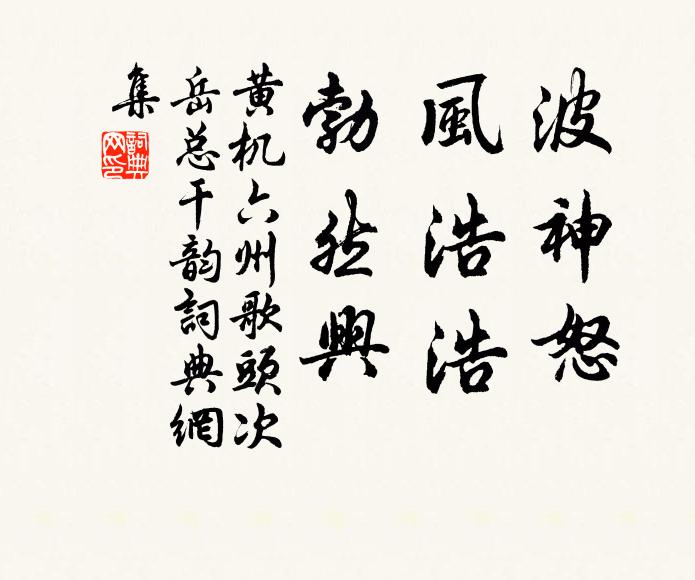 波神怒
風浩浩
勃然興
黄机六州歌頭次
岳总干韵詞典網
集
詞典網印